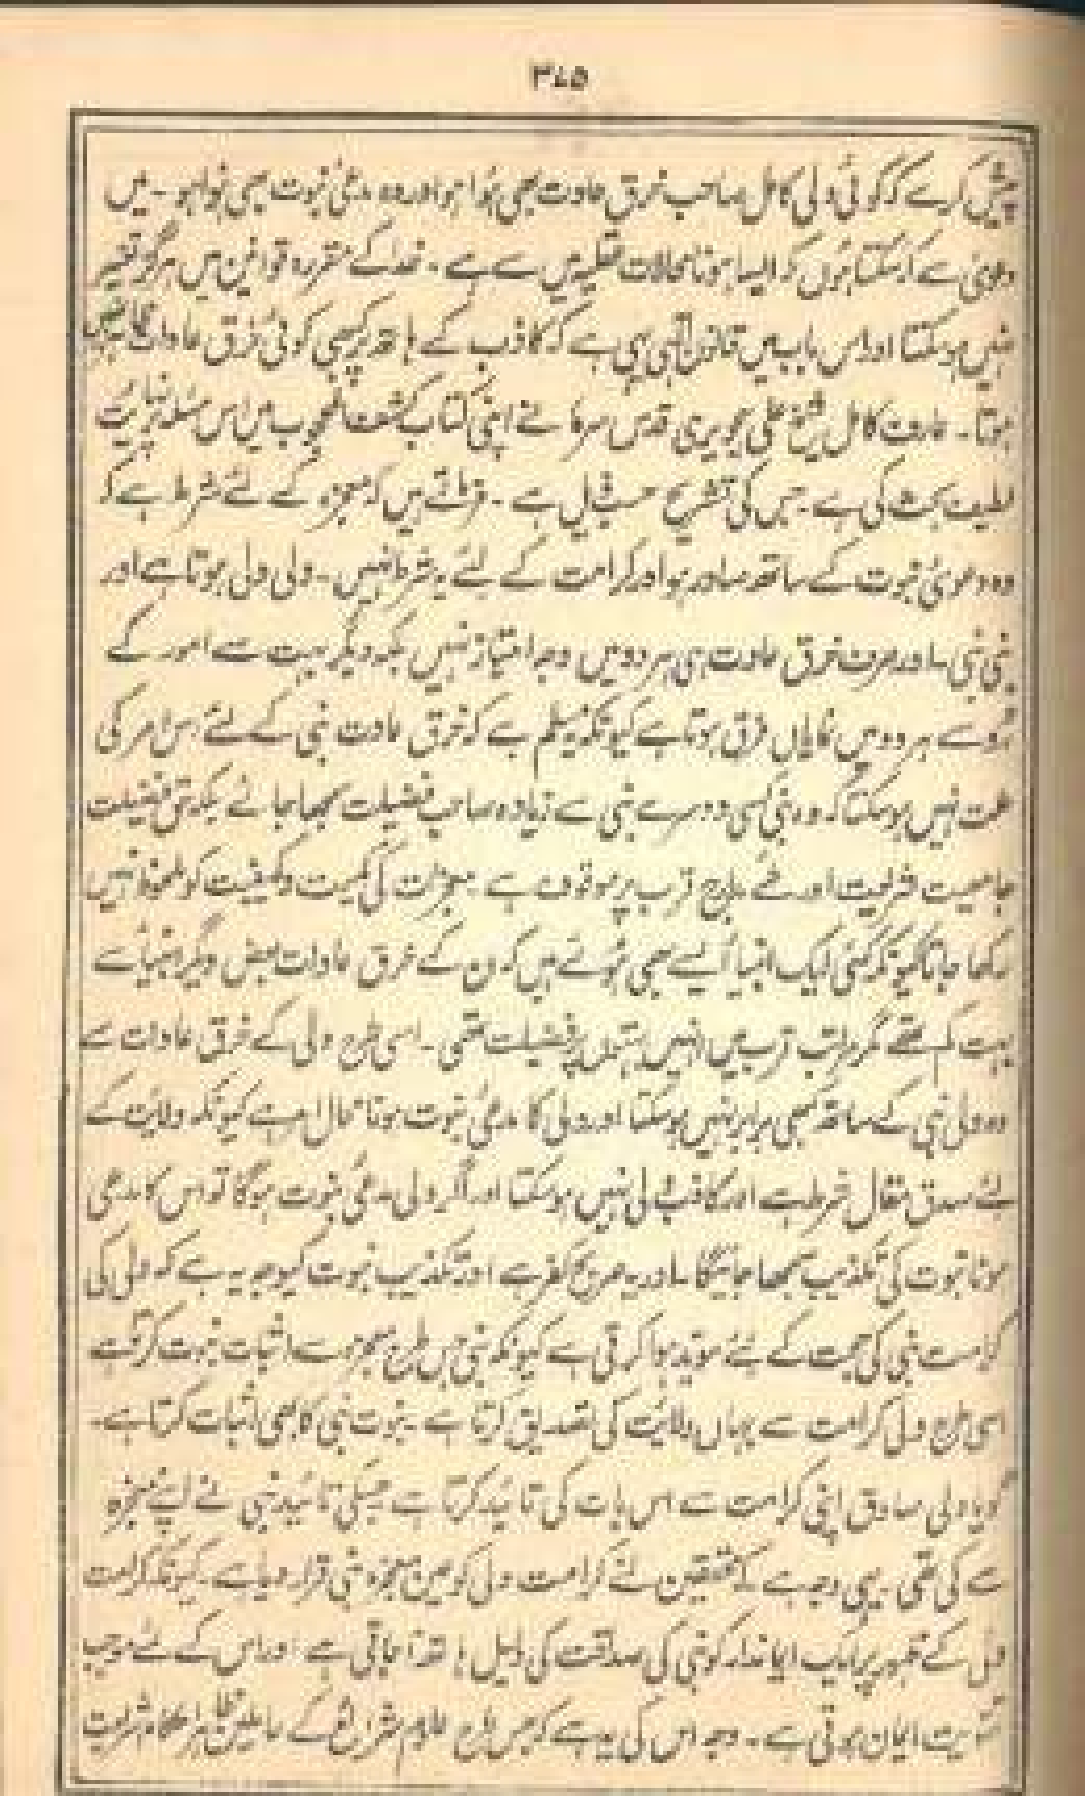 ۳۷۵
پیش کرے کہ کوئی ولی کامل صاحب خرق عادت بھی ہوا ہو اور وہ مدعیٔ نبوت بھی ہوا ہو۔ میں
دعویٰ سے کہہ سکتا ہوں کہ ایسا ہونا محالات عقلیہ میں سے ہے۔ خدا کے مقررہ قوانین میں ہرگز تغیر
نہیں ہو سکتا اور اس باب میں قانون الٰہی یہی ہے کہ کاذب کے ہاتھ پر کبھی کوئی خرق عادات ظاہر نہیں
ہوتا۔ عارف کامل شیخ علی ہجویری قدس سرہٗ نے اپنی کتاب کشف المحجوب میں اس مسئلہ پر نہایت
لطیف بحث کی ہے۔ جس کی تشریح حسب ذیل ہے۔ فرماتے ہیں کہ معجزہ کے لئے شرط ہے کہ
وہ دعویٰ نبوت کے ساتھ صادر ہو اور کرامت کے لئے یہ شرط نہیں۔ ولی ولی ہوتا ہے اور
نبی نبی۔ اور صرف خرق عادت ہی ہر دو میں وجہ امتیاز نہیں بلکہ دیگر بہت سے امور کے
رو سے ہر دو میں نمایاں فرق ہوتا ہے کیونکہ یہ مسلم ہے کہ خرق عادت نبی کے لئے اس امر کی
علت نہیں ہو سکتا کہ وہ نبی کسی دوسرے نبی سے زیادہ صاحب فضیلت سمجھا جائے بلکہ حق فضیلت
جامعیت شریعت اور مدارج قرب پر موقوف ہے معجزات کی کمیت و کیفیت کو ملحوظ نہیں
رکھا جاتا کیونکہ کئی ایک انبیأ ایسے بھی ہوئے ہیں کہ ان کے خرق عادات بعض دیگر انبیأ سے
بہت کم تھے مگر مراتب قرب میں انہیں پر فضیلت تھی۔ اسی طرح ولی کے خرق عادات سے
وہ ولی نبی کے ساتھ کبھی برابر نہیں ہو سکتا اور ولی کا مدعیٔ نبوت ہونا محال امر ہے کیونکہ ولایت کے
لئے صدق مقال شرط ہے اور کاذب ولی نہیں ہو سکتا اور اگر ولی مدعیٔ نبوت ہوگا تو اس کا مدعی
ہونا نبوت کی تکذیب سمجھا جائیگا۔ اور یہ صریح کفر ہے اور تکذیب نبوت کیوجہ یہ ہے کہ ولی کی
کرامت نبی کی حجت کے لئے مؤید ہوا کرتی ہے کیونکہ نبی جس طرح معجزہ سے اثبات نبوت کرتا ہے
اسی طرح ولی کرامت سے جہاں ولایت کی تصدیق کرتا ہے۔ نبوت نبی کا بھی اثبات کرتا ہے۔
گویا ولی صادق اپنی کرامت سے اس بات کی تائید کرتا ہے جسکی تائید نبی نے اپنے معجزہ
سے کی تھی۔ یہی وجہ ہے کہ محققین نے کرامت ولی کو عین معجزہ نبی قرار دیا ہے۔ کیونکہ کرامت
ولی کے ظہور پر ایک ایماندار کو نبی کی صداقت کی دلیل ہاتھ آ جاتی ہے اور اس کے لئے موجب
تقویت ایمان ہوتی ہے۔ وجہ اس کی یہ ہے کہ جس طرح علوم شرائع کے حاملین ظاہر احکام شریعت